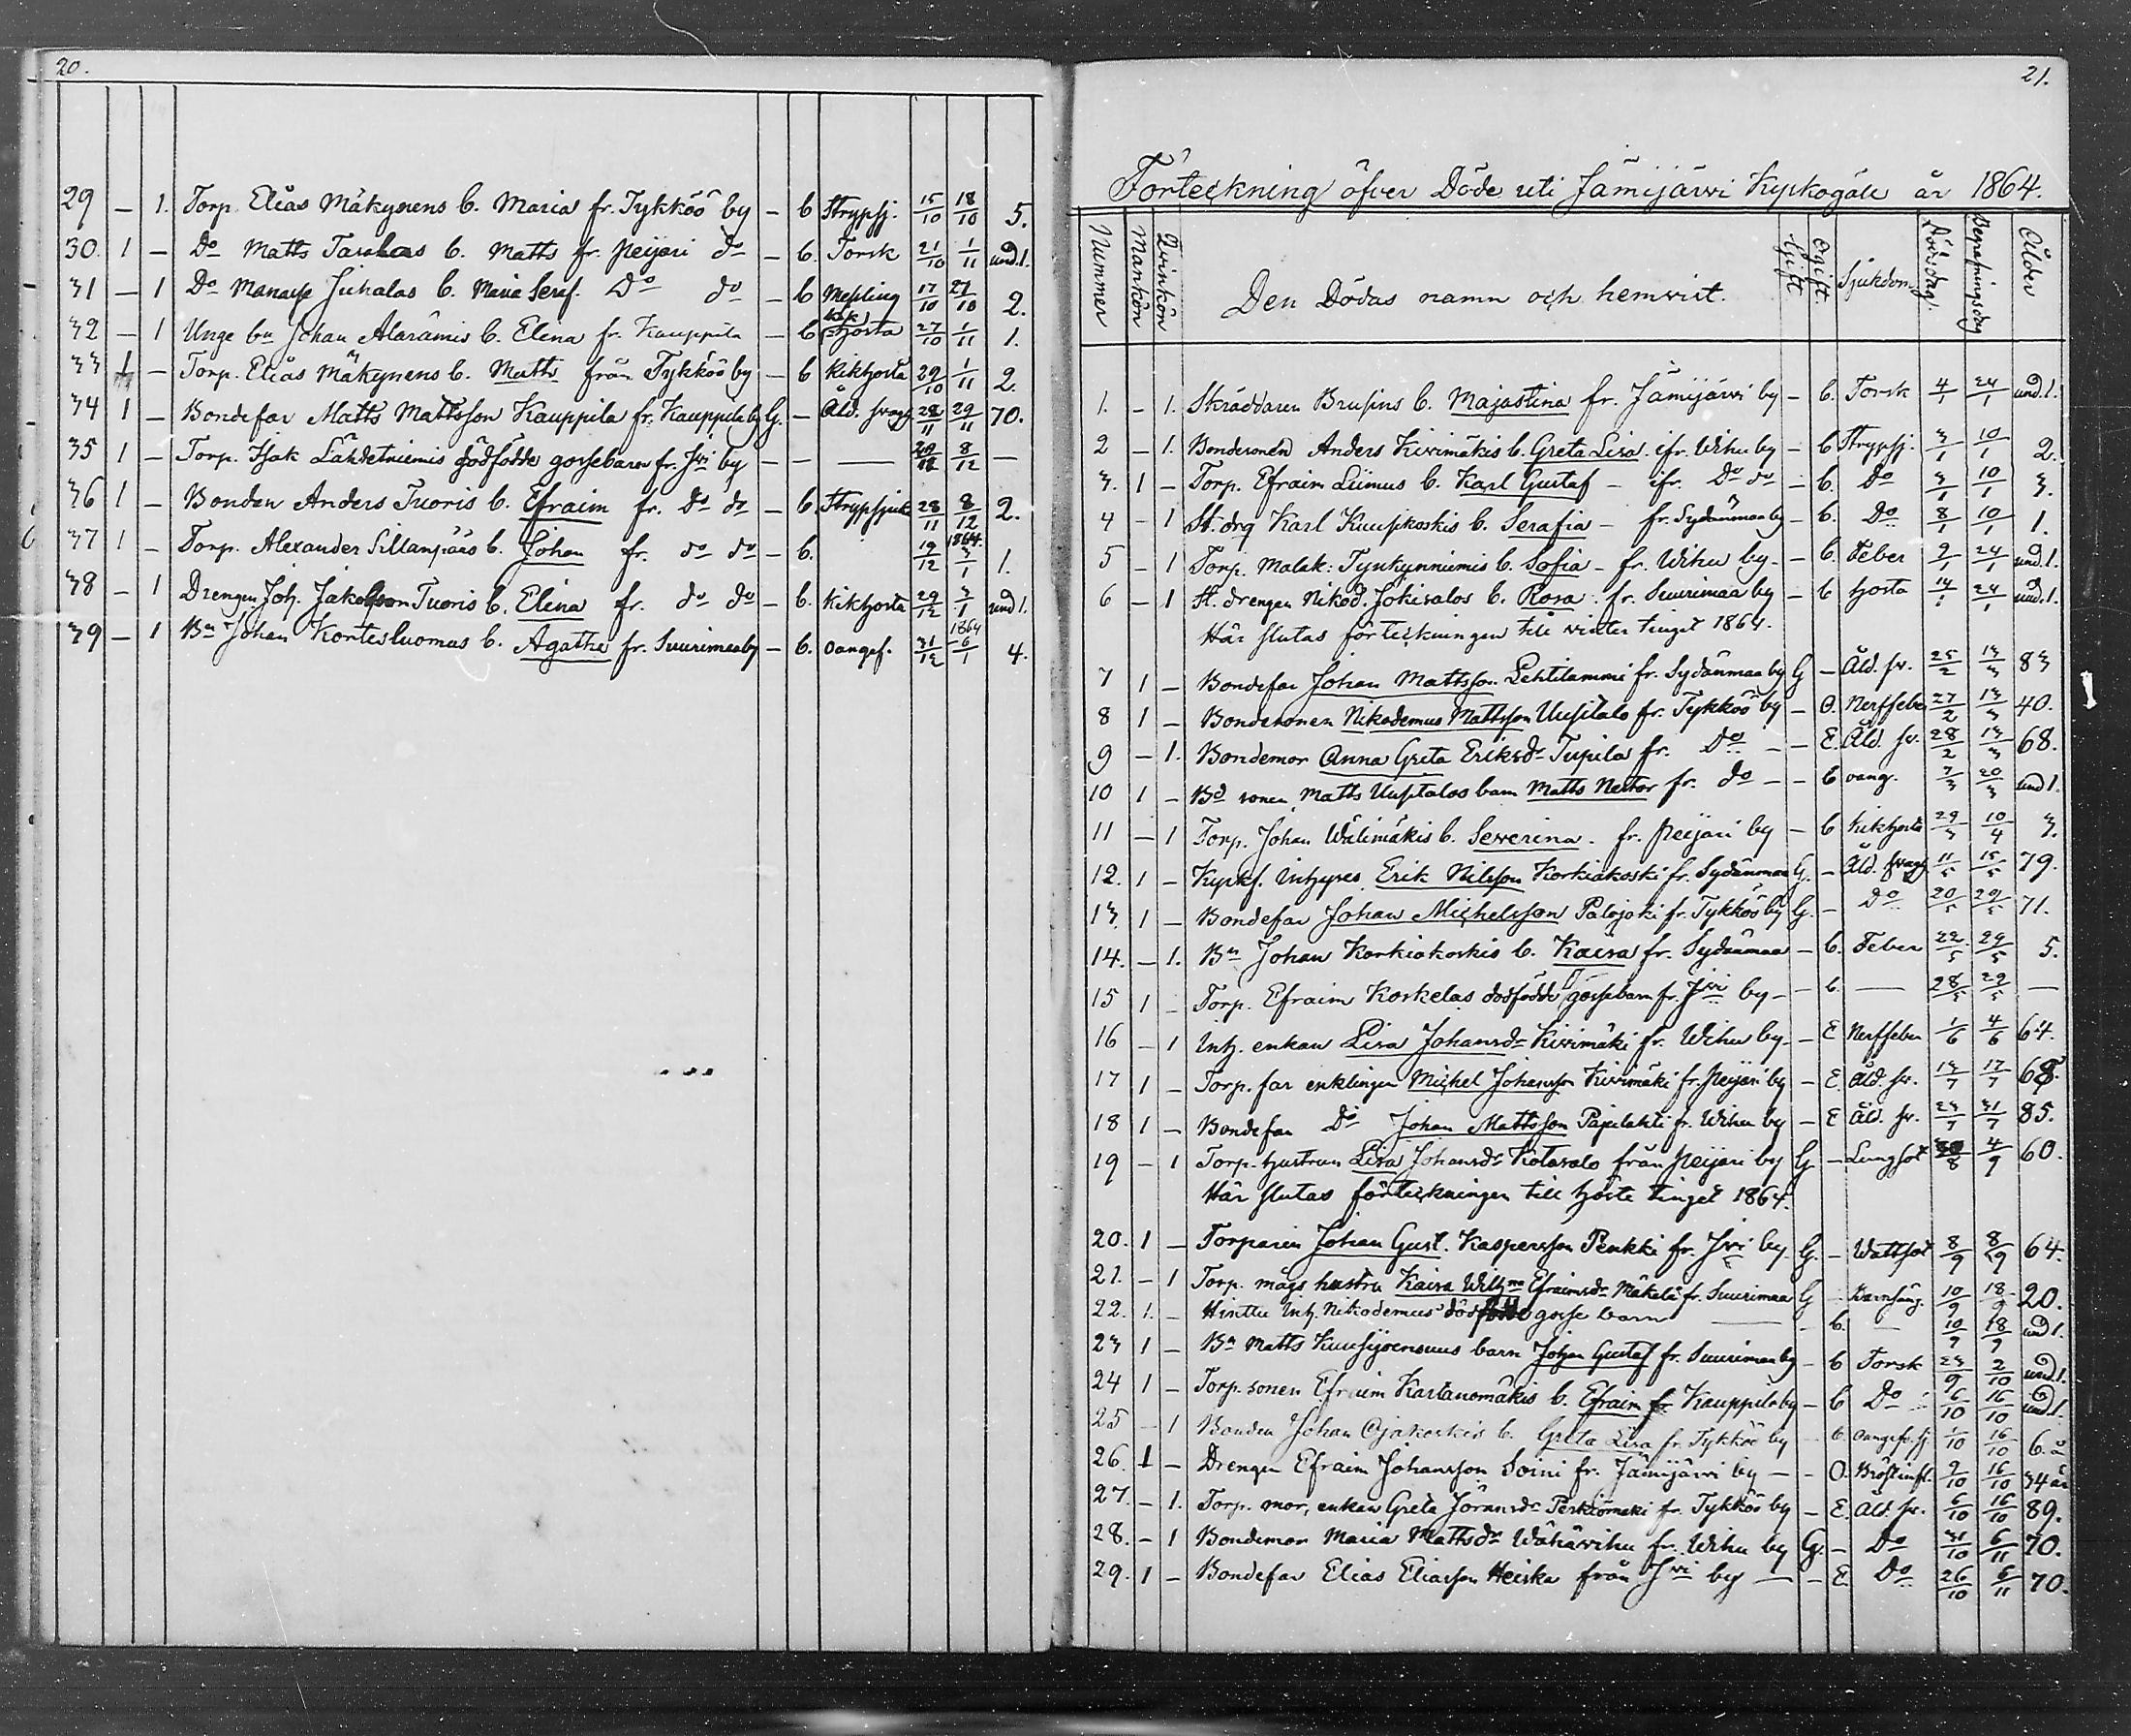 20.
29 – 1. Torp. Elias Mäkynens b. Maria fr. Tykköö by – b Strypsj. 15/10 18/10 5.
30. 1 – Do Matts b. Matts fr. Peijari do – b. Torsk 21/10 1/11 und. 1.
31 – 1 Do Manasse Juhalas b. Maria Seraf. Do do – b Messling 17/10 27/10 2.
32 – 1 Unge bn Johan Alarämis b. Elina fr. Kauppila – b hosta 27/10 1/11 1.
33 1 – Torp. Elias Mäkynens b. Matts från Tykköö by – b Kikhosta 29/10 1/11 2.
34 1 – Bondefar Matts Mattsson Kauppila fr. Kauppila by G. – Åld. svagh 28/11 29/11 70.
35 1 – Torp. Isak Lähdeniemis dödfödde gossebarn fr. Jvi by – – — 8/12 —
36 1 – Bonden Anders Tuoris b. Efraim fr. do do – b. Strypsjuk 28/11 8/12 2.
37 1 – Torp. Alexander Sillanpääs b. Johan fr. do do – b. 19/12 1864 3/1 1.
38 – 1 Drengen Joh. Jakobsson Tuoris b. Elina fr. do do – b. Kikhosta 29/12 3/1 und 1.
39 – 1 Bn Johan Kortesluomas b. Agatha fr. Suurimaa by – b. oangef. 31/12 1864 6/1 4.
21.
Förteckning öfver Döde uti Jämijärvi Kyrkogäll år 1864.
Nummer Mankön Qvinkön Den Dödas namn och hemvist. Gift Ogift Sjukdom Dödsdag Begrafningsdag Ålder
1. – 1. Skräddaren Brusins b. Majastina fr. Jämijärvi by – b. Torsk 4/1 24/1 und. 1.
2 – 1. Bondesonen Anders Kivimäkis b. Greta Lisa ifr. Wihu by – b Strypsj. 3/1 10/1 2.
3. 1 – Torp. Efraim Liimus b. Karl Gustaf – ifr. Do do – b. Do 3/1 10/1 3.
4 – 1 St. drg Karl Kuupkoskis b. Serafia – fr. Sydänmaa by – b. Do 8/1 10/1 1.
5 – 1 Torp. Malak. Tynkynniemis b. Sofia – fr. Wihu by – – b. Feber 9/1 24/1 und. 1.
6 – 1 St. drengen Nikod. Jokisalos b. Rosa fr. Suurimaa by – b hosta 14/1 24/1 und. 1.
Här slutas förteckningen till vinter tinget 1864.
7 1 – Bondefar Johan Mattsson Lehtilammi fr. Sydänmaa by G – Åld. sv. 25/2 13/3 83
8 1 – Bondesonen Nikodemus Mattsson Uusitalo fr. Tykköö by – O. Nerffeber 27/2 13/3 40.
9 – 1. Bondemor Anna Greta Eriksdr Tupila fr. Do – – E. Åld. sv. 28/2 13/3 68.
10 1 – Bd sonen Matts Uusitalos barn Matts Nestor fr. do – – b oang. 7/3 20/3 und 1.
11 – 1 Torp. Johan Wälimäkis b. Severina fr. Peijari by – b Kikhosta 29/3 10/4 3.
12. 1 – Kyrkf. inhyses Erik Nilsson Korkiakoski fr. Sydänmaa G. – Åld. svagh 11/5 15/5 79.
13. 1 – Bondefar Johan Michelsson Palojoki fr. Tykköö by G. – Do 20/5 29/5 71.
14. – 1. Bn Johan Korkiakoskis b. Kaisa fr. Sydänmaa – b. Feber 22/5 29/5 5.
15 1 – Torp. Efraim Koskelas dödfödde gossebarn fr. Jvi by – – b. — 28/5 29/5 —
16 – 1 Inh. enkan Lisa Johansdr Kivimäki fr. Wihu by – – E Nerffeber 1/6 4/6 64.
17 1 – Torp. far enklingen Michel Johansson Kivimäki fr. Peijari by – E. Åld. sv. 13/7 17/7 68.
18 1 – Bondefar Do Johan Mattsson Papilahti fr. Wihu by – E Åld. sv. 23/7 31/7 85.
19 – 1 Torp. hustrun Lisa Johansdr Kotasalo från Peijari by G. – Lungsot 30/8 4/9 60.
Här slutas förteckningen till höste tinget 1864.
20. 1 – Torparen Johan Gust. Kaspersson Penkki fr. Jvi by G. – Wattsot 8/9 8/9 64.
21. – 1 Torp. mågs hustru Kaisa Wilhma Efraimsdr Mäkelä fr. Suurimaa G – Barnsäng. 10/9 18/9 20.
22. 1. – Hinttu Inh. Nikodemus dödfödde gosse barn — – b. — 10/9 18/9 und 1.
23 1 – Bn Matts Kuusijoensuus barn Johan Gustaf fr. Suurimaa by – b Torsk 23/9 2/10 und. 1.
24 1 – Torp. sonen Efraim Kartanomäkis b. Efraim fr. Kauppila by – b Do 6/10 16/10 und 1.
25 – 1 Bonden Johan Ojakoskis b. Greta Lisa fr. Tykköö by – b. oangef. sj. 1/10 16/10 6. å
26. 1 – Drengen Efraim Johansson Soini fr. Jämijärvi by – – O. Bröstinfl. 9/10 16/10 34 år
27. – 1. Torp. mor, enkan Greta Göransdr Perkiömäki fr. Tykköö by – E. Åld. sv. 6/10 16/10 89.
28. – 1 Bondemor Maria Mattsdr Wähäwihu fr. Wihu by G. – Do 31/10 6/11 70.
29. 1 – Bondefar Elias Eliasson Heiska från Jvi by — – E. Do 26/10 6/11 70.